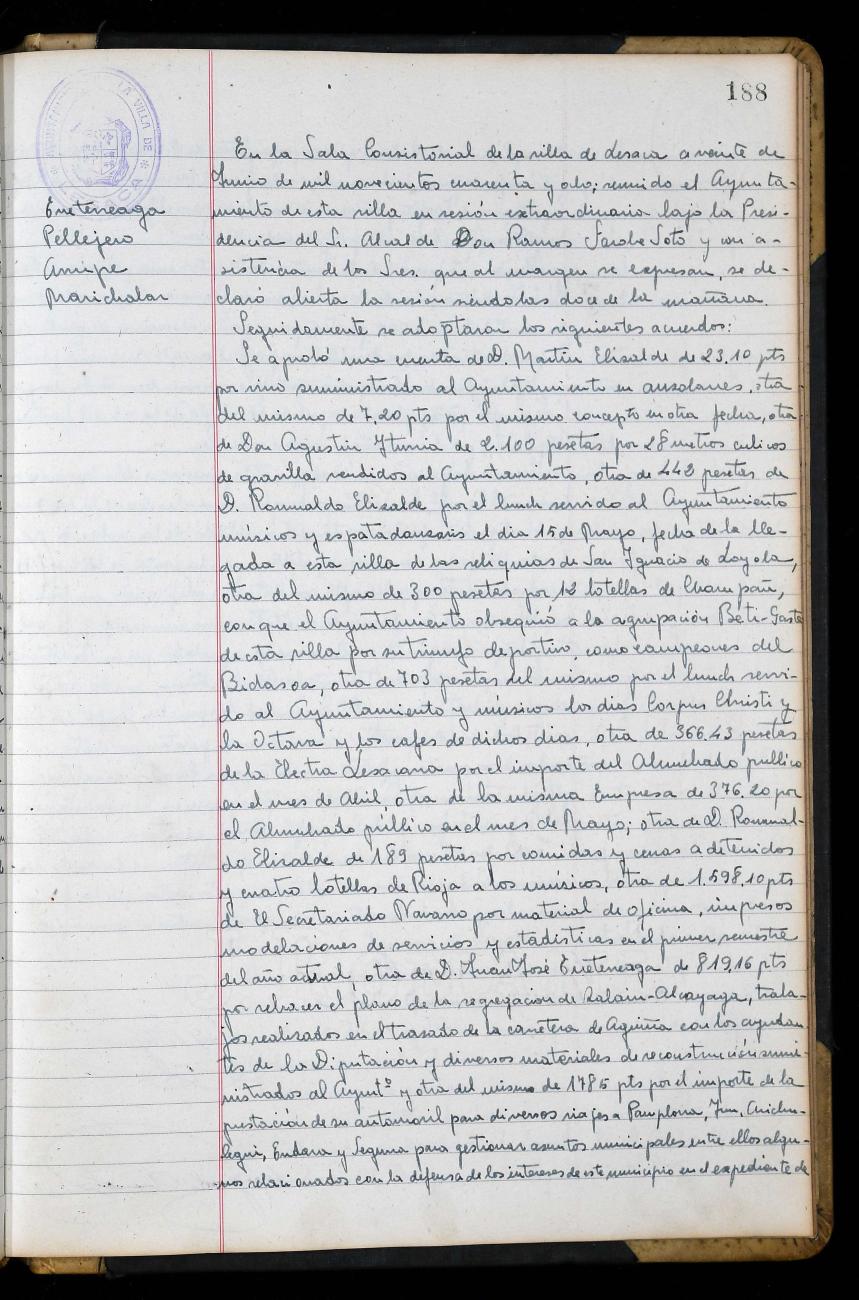 188
AYUNTAMIENTO DE LA VILLA DE LESACA
Erreteneaga
Pellejero
Arripe
Marichalar
En la Sala Consistorial de la villa de Lesaca a veinte de
Junio de mil novecientos cuarenta y ocho; reunido el Ayunta-
miento de esta villa en sesión extraordinaria bajo la Presi-
dencia del Sr. Alcalde Don Ramos Sarobe Soto y con a-
sistencia de los Sres. que al margen se expresan, se de-
claró abierta la sesión siendo las doce de la mañana.
Seguidamente se adoptaron los siguientes acuerdos:
Se aprobó una cuenta de D. Martín Elizalde de 23.10 pts
por vino suministrado al Ayuntamiento en auzolanes, otra
del mismo de 7,20 pts por el mismo concepto en otra fecha, otra
de Don Agustin Iturria de 2.100 pesetas por 28 metros cubicos
de gravilla vendidos al Ayuntamiento, otra de 442 pesetas de
D. Romualdo Elizalde por el lunch servido al Ayuntamiento
músicos y espatadanzaris el dia 15 de Mayo, fecha de la lle-
gada a esta villa de las reliquias de San Ignacio de Loyola,
otra del mismo de 300 pesetas por 12 botellas de Champañ,
con que el Ayuntamiento obsequió a la agrupación Beti-Gazte
de esta villa por su triunfo deportivo, como campeones del
Bidasoa, otra de 703 pesetas del mismo por el lunch servi-
do al Ayuntamiento y músicos los dias Corpus Christi y
la Octava y los cafes de dichos dias, otra de 366,43 pesetas
de la Electra Lesacana por el importe del Alumbrado publico
en el mes de Abril, otra de la misma Empresa de 376.20 por
el Alumbrado público en el mes de Mayo; otra de D. Romual-
do Elizalde de 189 pesetas por comidas y cenas a detenidos
y cuatro botellas de Rioja a los músicos, otra de 1.598,10 pts
de El Secretariado Navarro por material de oficina, impresos
modelaciones de servicios y estadísticas en el primer semestre
del año actual, otra de D. Juan José Erreteneaga de 819,16 pts
por rehacer el plano de la segregacion de Zalain-Alcayaga, traba-
jos realizados en el trazado de la carretera de Agiña con los ayudan
tes de la Diputación y diversos materiales de reconstrucción sumi-
nistrados al Ayuntº y otra del mismo de 1785 pts por el importe de la
prestación de su automovil para diversos viajes a Pamplona, Irun,
Endara y Segura para gestionar asuntos municipales entre ellos algu-
nos relacionados con la defensa de los intereses de este municipio en el expediente de